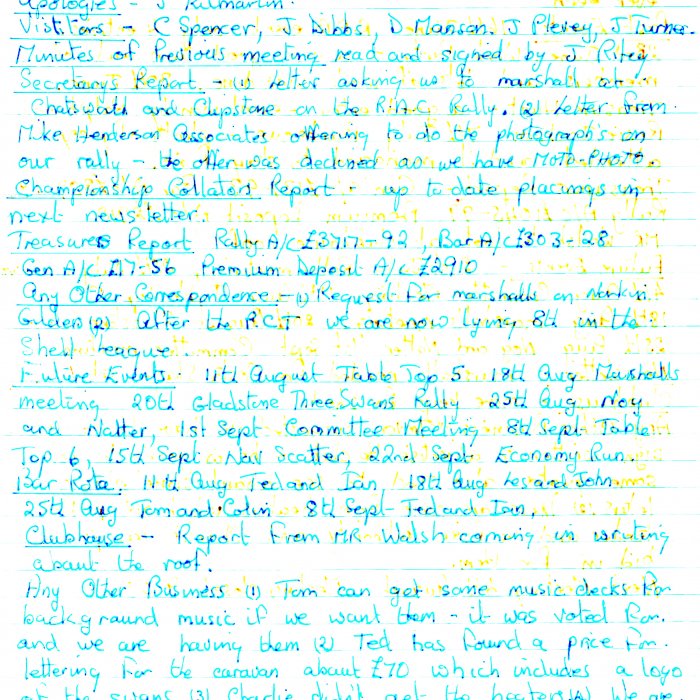 Apologies - J Kilmartin.
Visitors - C Spencer, J. Dibbs, D Manson. J Plevey, J Turner.
Minutes of Previous meeting read and signed by J Riley
Secretarys Report - (1) Letter asking us to marshall at
Chatsworth and Clipstone on the R.A.C Rally. (2) Letter from
Mike Henderson Associates offering to do the photographs on
our rally - the offer was declined as we have MOTO-PHOTO.
Championship Collators Report - up to date placings in
next news letter.
Treasures Report Rally A/C £3717-92, Bar A/C £303-28
Gen A/C £17-56 Premium Deposit A/C £2910
Any Other Correspondence - (1) Request for marshalls on
(2) After the P.C.T we are now lying 8th in the
Shell League.
Future Events - 11th August Table Top 5 18th Aug Marshalls
meeting 20th Gladstone Three Swans Rally 25th Aug Nog
and Natter, 1st Sept Committee Meeting 8th Sept Table
Top 6, 15th Sept Nav Scatter, 22nd Sept Economy Run
Bar Rota. 11th Aug Ted and Ian, 18th Aug Les and John
25th Aug Tom and Colin 8th Sept - Ted and Ian,
Clubhouse - Report from MR Walsh coming in writing
about the roof.
Any Other Business (1) Tom can get some music decks for
background music if we want them - it was voted for.
and we are having them (2) Ted has found a price for
lettering for the caravan about £70 which includes a logo
of the swans (3) Charlie didn't get the